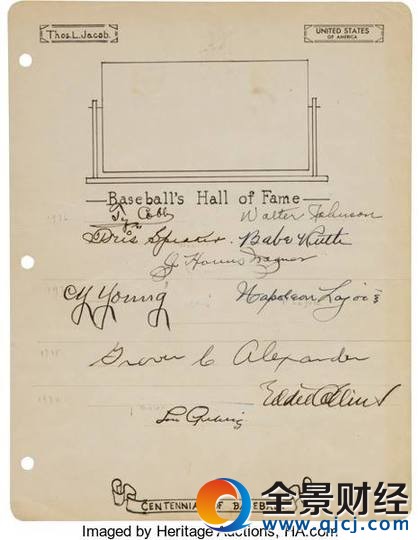 Thos. L. Jacob.
UNITED STATES
OF AMERICA
Baseball's Hall of Fame
Ty Cobb
Walter Johnson
Tris Speaker
Babe Ruth
J. Honus Wagner
Cy Young
Napoleon Lajoie
Grover C Alexander
Eddie Collins
Lou Gehrig
CENTENNIAL OF BASEBALL
全景财经
www.qjcj.com
Imaged by Heritage Auctions, HA.com